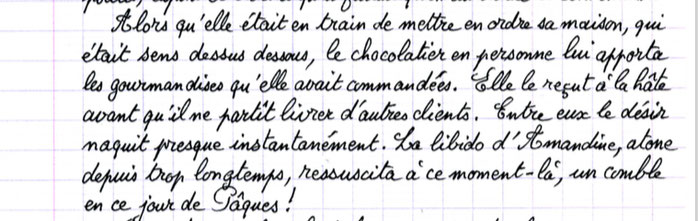 Alors qu'elle était en train de mettre en ordre sa maison, qui
était sens dessus dessous, le chocolatier en personne lui apporta
les gourmandises qu'elle avait commandées. Elle le reçut à la hâte
avant qu'il ne partît livrer d'autres clients. Entre eux le désir
naquit presque instantanément. La libido d'Amandine, atone
depuis trop longtemps, ressuscita à ce moment-là, un comble
en ce jour de Pâques !